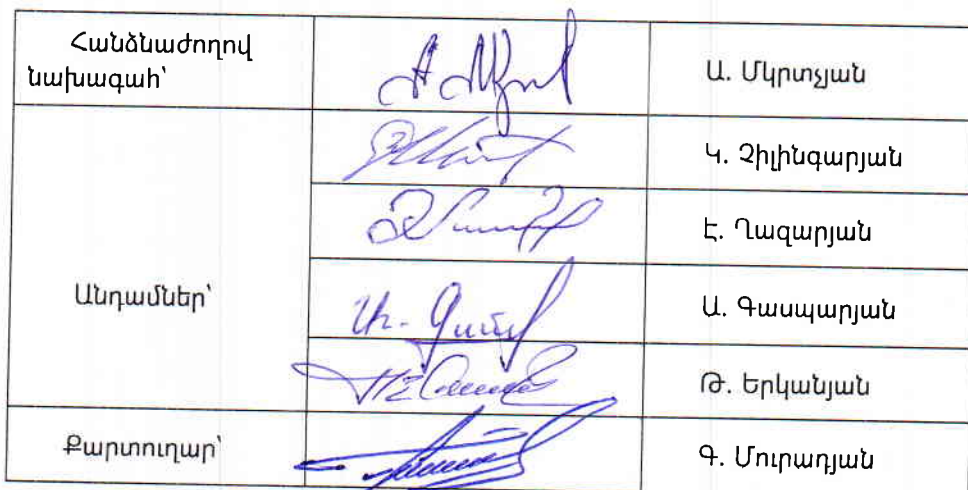 Հանձնաժողով
նախագահ՝
Ա. Մկրտչյան
Կ. Չիլինգարյան
Է. Ղազարյան
Անդամներ՝
Ա. Գասպարյան
Թ. Երկանյան
Քարտուղար՝
Գ. Մուրադյան